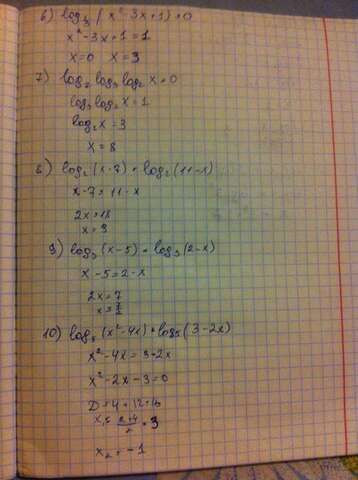 6) log₃(x²-3x+1)=0
x²-3x+1=1
x=0 x=3
7) log₂log₃log₂x=0
log₃log₂x=1
log₂x=3
x=8
8) log₂(x-7)=log₂(11-x)
x-7=11-x
2x=18
x=9
9) log₃(x-5)=log₃(2-x)
x-5=2-x
2x=7
x=7/2
10) log₅(x²-4x)=log₅(3-2x)
x²-4x=3-2x
x²-2x-3=0
D=4+12=16
x₁=(2+4)/2=3
x₂=-1